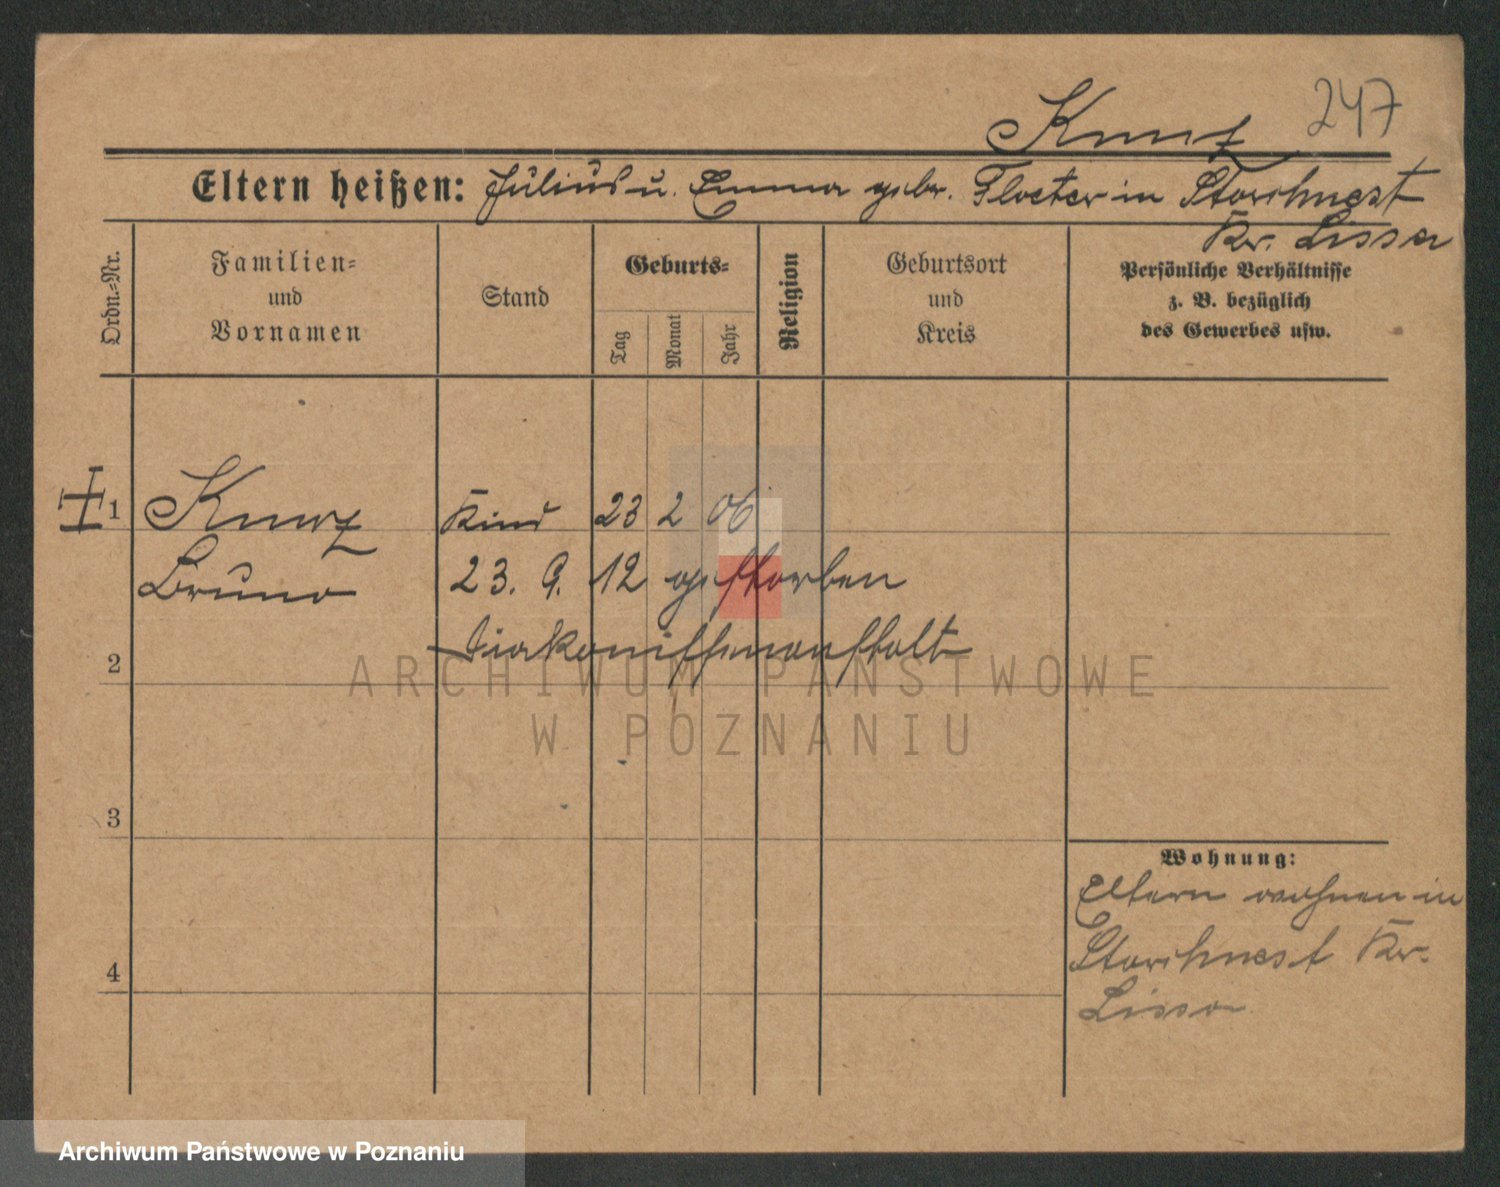 247
Kunz
Eltern heißen: Julius u. Emma gebr. Floeter in Storchnest
Kr. Lissa
Ordn.=Nr.
Familien=
und
Vornamen
Stand
Geburts=
Tag
Monat
Jahr
Religion
Geburtsort
und
Kreis
Persönliche Verhältnisse
z. B. bezüglich
des Gewerbes usw.
1 Kunz Kind 23 2 06
Bruno 23. 9. 12 gestorben
Diakonissenanstalt
2
3
4
Wohnung:
Eltern wohnen in
Storchnest Kr.
Lissa
ARCHIWUM PAŃSTWOWE
W POZNANIU
Archiwum Państwowe w Poznaniu